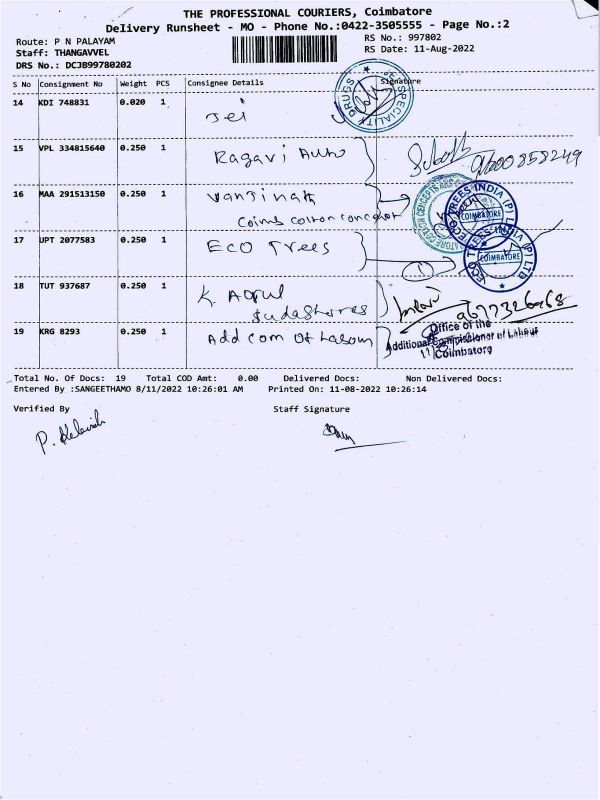 THE PROFESSIONAL COURIERS, Coimbatore
Delivery Runsheet - MO - Phone No.:0422-3505555 - Page No.:2
Route: P N PALAYAM RS No.: 997802
Staff: THANGAVVEL RS Date: 11-Aug-2022
DRS No.: DCJB99780202
S No Consignment No Weight PCS Consignee Details Signature
14 KDI 748831 0.020 1 Jei
DRUGS OF SPECIALITY
15 VPL 334815640 0.250 1 Ragavi Auto
16 MAA 291513150 0.250 1 Coims cotton concept
ECO TREES INDIA (P) LTD
COIMBATORE
17 UPT 2077583 0.250 1 ECO Trees
ECO TREES INDIA (P) LTD
COIMBATORE
18 TUT 937687 0.250 1 K.
19 KRG 8293 0.250 1 Add com of Labour
Office of the
Additional Commissioner of Labour
Coimbatore
Total No. Of Docs: 19 Total COD Amt: 0.00 Delivered Docs: Non Delivered Docs:
Entered By :SANGEETHAMO 8/11/2022 10:26:01 AM Printed On: 11-08-2022 10:26:14
Verified By Staff Signature